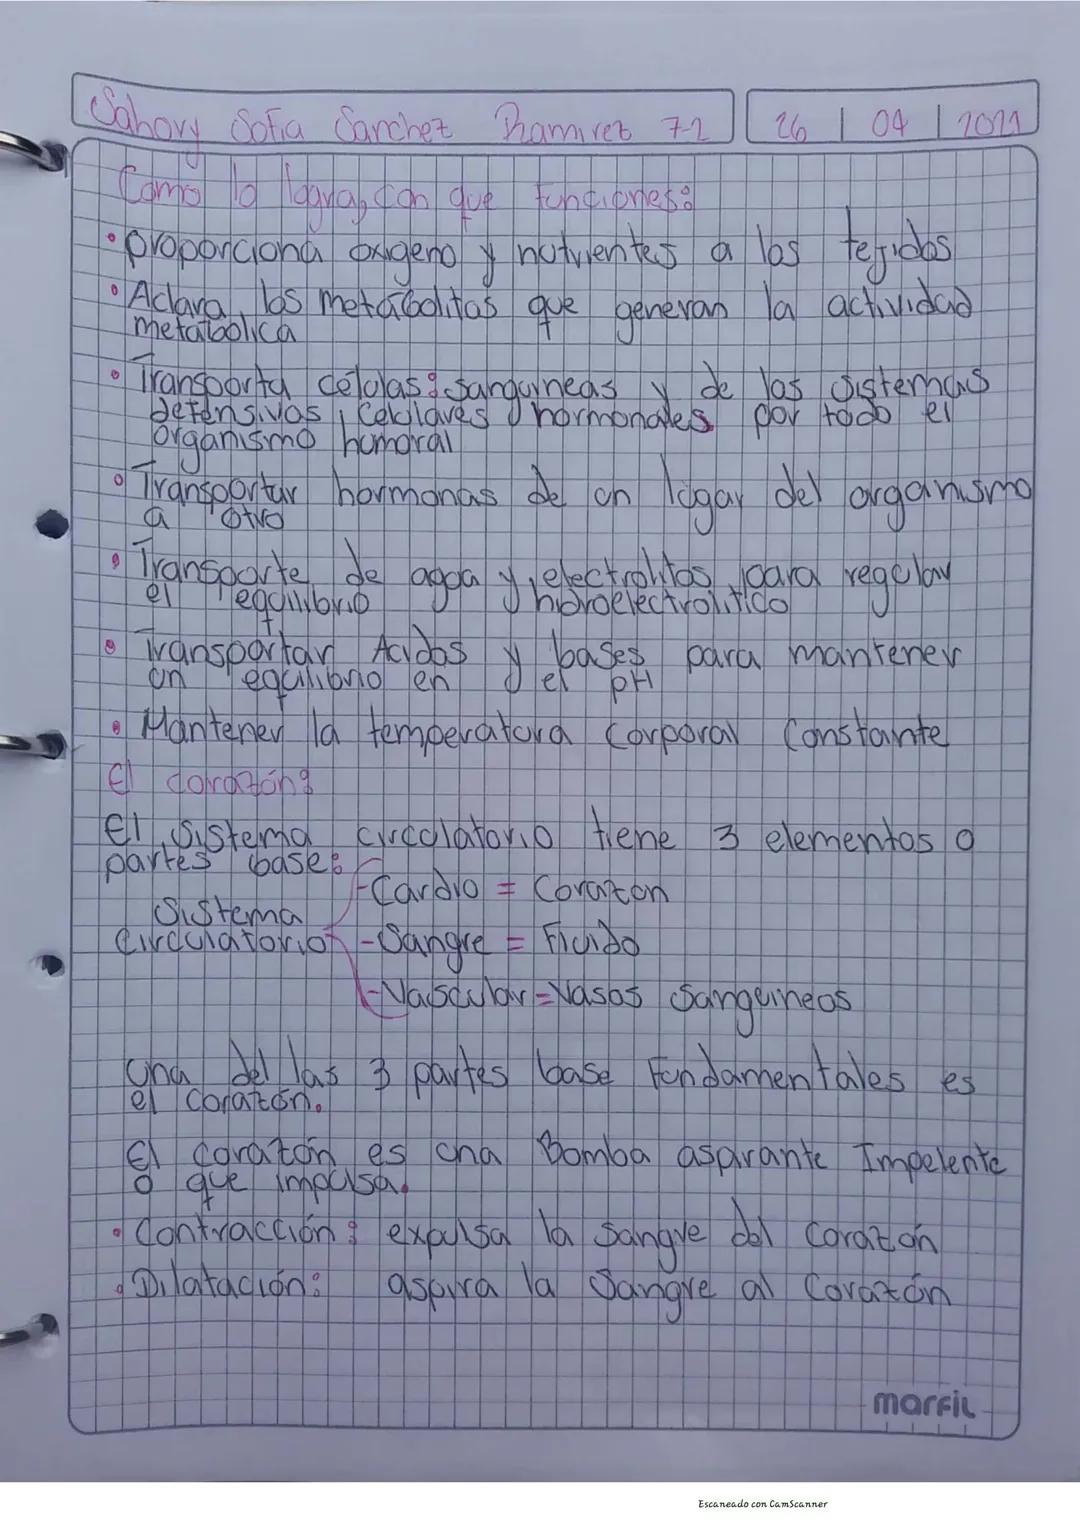 Sahory Sofia Sanchez Ramirez 7-2 26 | 04 | 2021
Como lo logra, con que funciones:
• proporciona oxigeno y nutrientes a los tejidos
• Aclara los metabolitas que generan la actividad
metabolica
• Transporta celulas: sanguineas y de los sistemas
defensivos, celulares hormonales por todo el
organismo humoral
• Transportar hormonas de un lugar del organismo
a otro
• Transporte de agua y electrolitos para regular
el equilibrio hidroelectrolitico
• Transportar Acidos y bases para mantener
un equilibrio en el pH
• Mantener la temperatura corporal constante
El corazón:
El sistema circulatorio tiene 3 elementos o
partes base:
-Cardio = Corazon
Sistema
circulatorio -Sangre = Fluido
-Vascular = Vasos sanguineos
Una del las 3 partes base Fundamentales es
el corazón.
El corazón es una Bomba aspirante Impelente
o que impulsa.
• Contracción: expulsa la sangre del corazón
• Dilatación: aspira la Sangre al Corazón
marfil
Escaneado con CamScanner